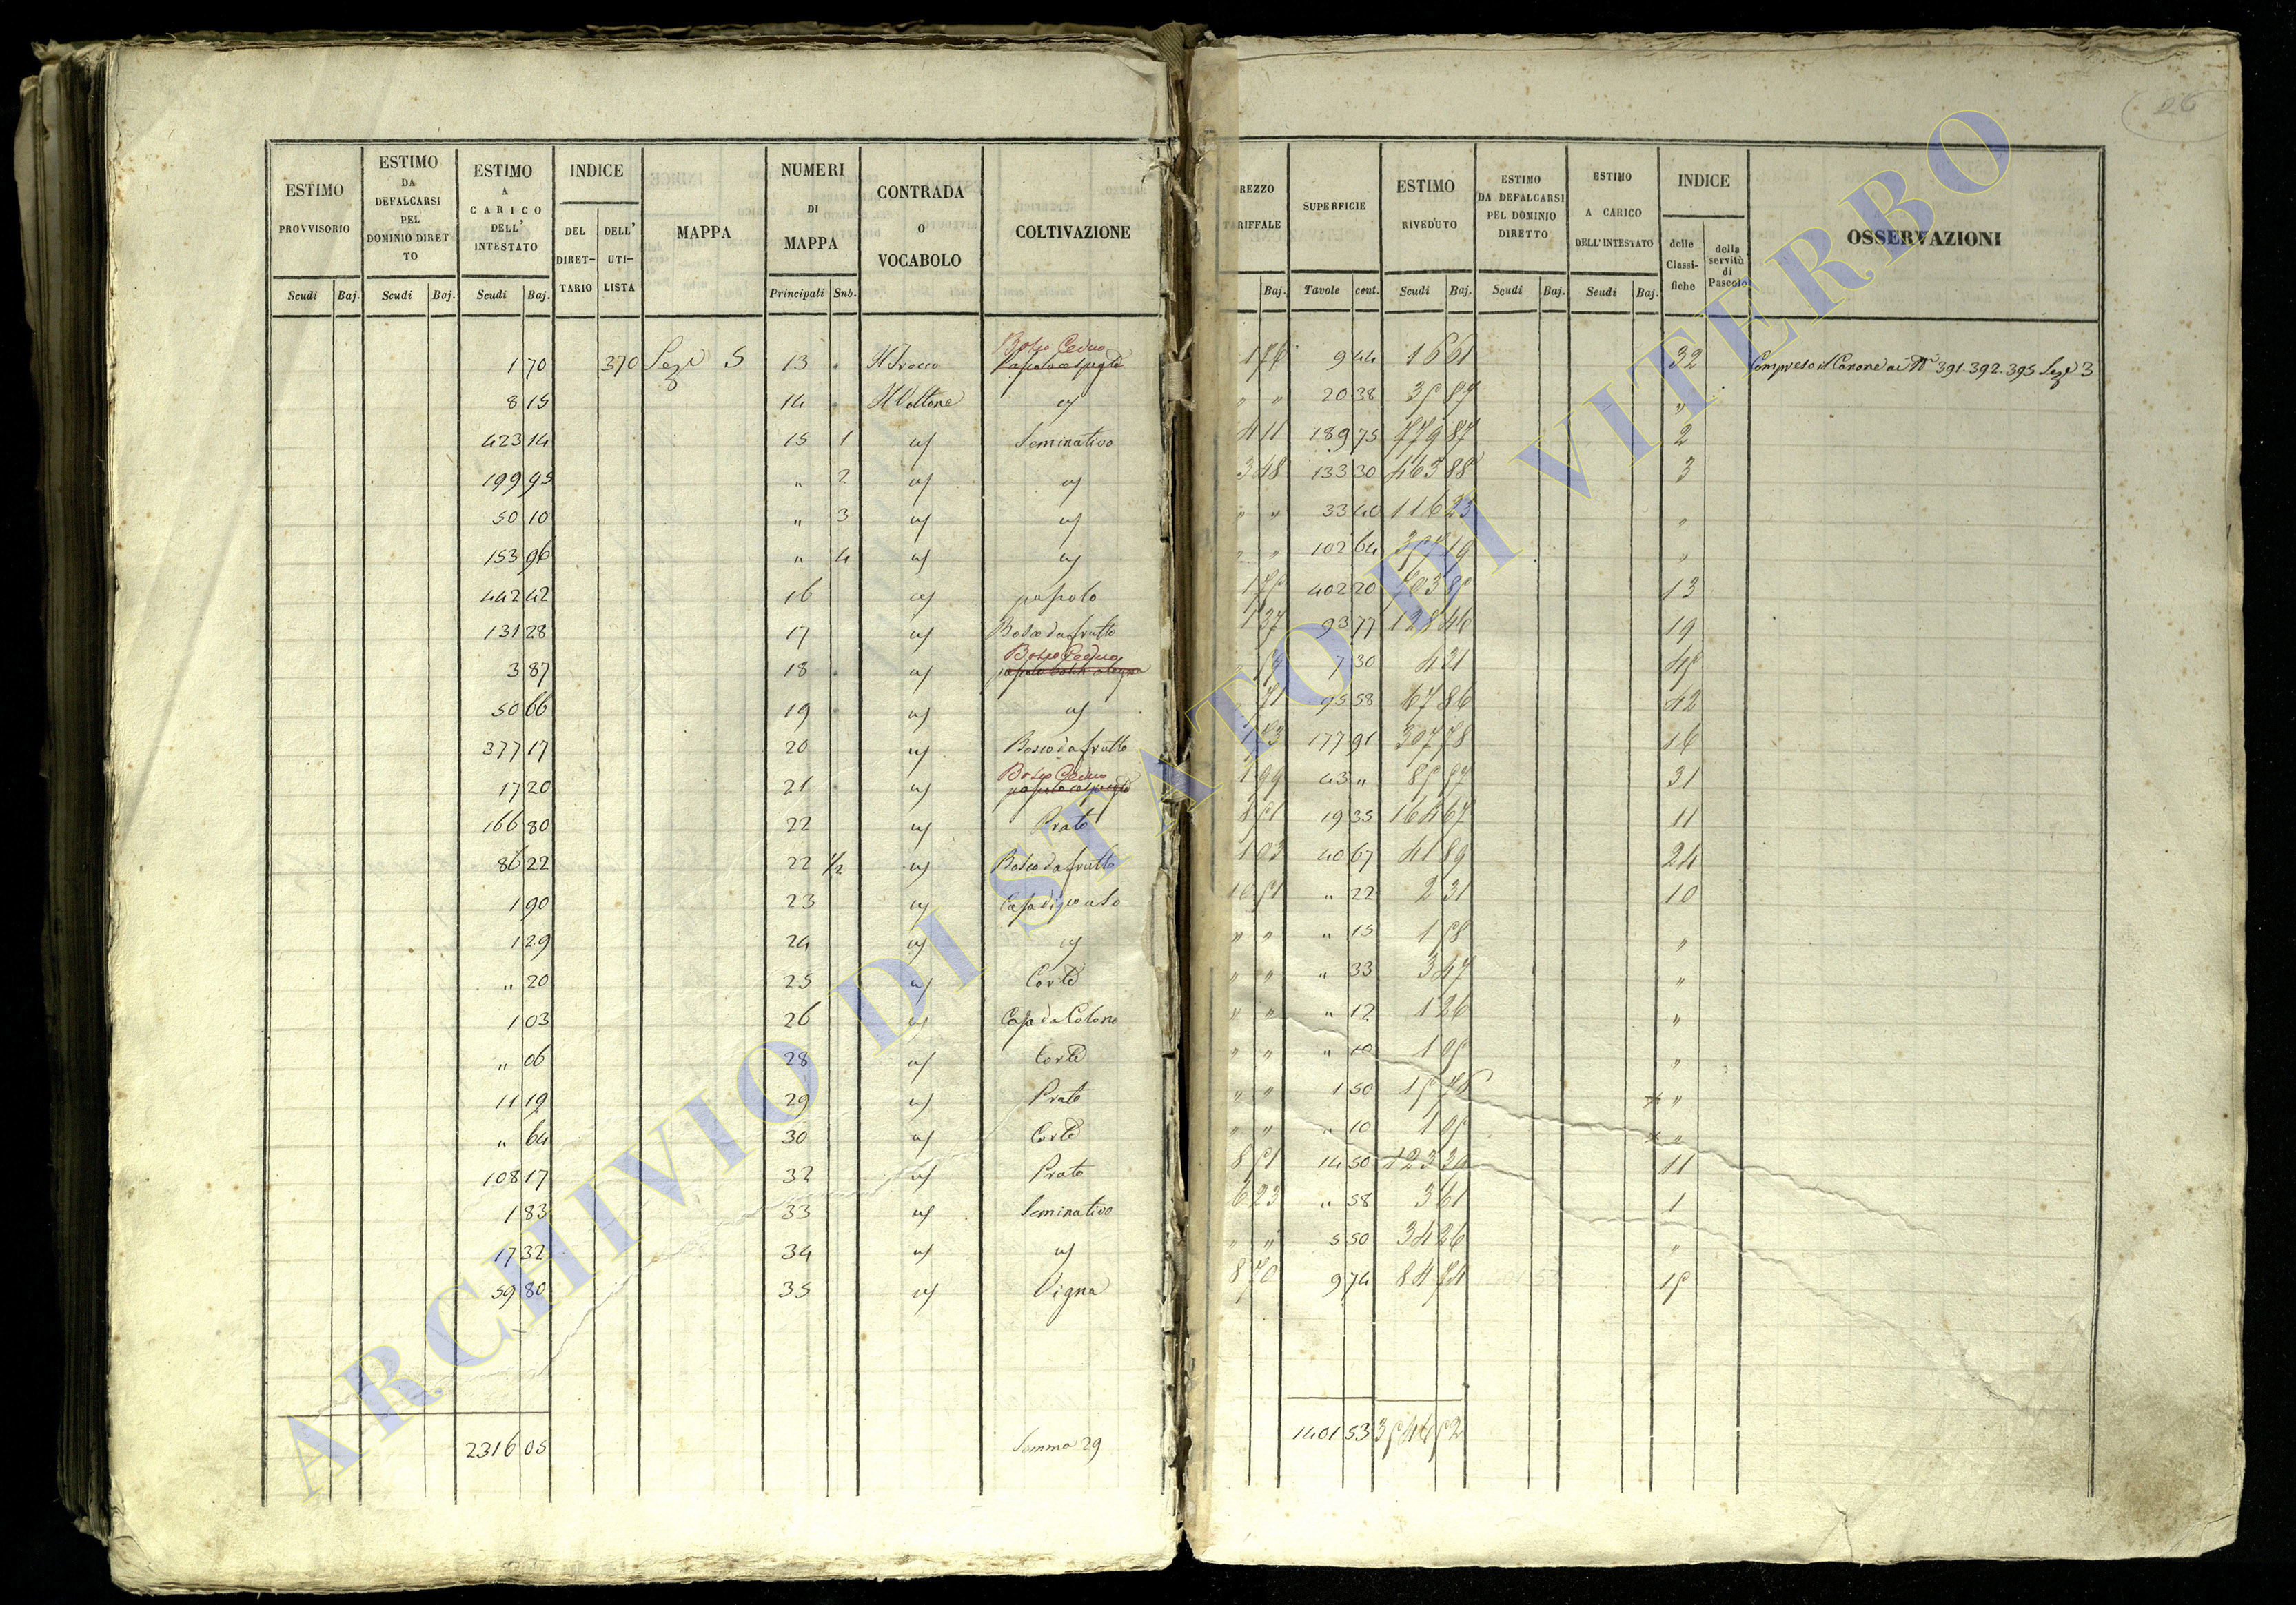 26
ESTIMO PROVVISORIO Scudi Baj.
ESTIMO DA DEFALCARSI PEL DOMINIO DIRET TO Scudi Baj.
ESTIMO A CARICO DELL' INTESTATO Scudi Baj.
INDICE DEL DIRET-TARIO DELL' UTI-LISTA
MAPPA
NUMERI DI MAPPA Principali Snb.
CONTRADA O VOCABOLO
COLTIVAZIONE
REZZO TARIFFALE Baj.
SUPERFICIE Tavole cent.
ESTIMO RIVEDUTO Scudi Baj.
ESTIMO DA DEFALCARSI PEL DOMINIO DIRETTO Scudi Baj.
ESTIMO A CARICO DELL'INTESTATO Scudi Baj.
INDICE delle Classi-fiche della servitù di Pascolo
OSSERVAZIONI
Bosco Ceduo
1 70 370 Sez.e 5 13 Il Trocco 1 76 9 44 16 61 32 Compreso il Canone ai N.i 391. 392. 395 Sez.e 3
8 15 14 Il Vallone " " 20 38 35 87 "
423 14 15 1 Seminativo 4 11 189 75 779 87 2
199 95 " 2 3 48 133 30 463 88 3
50 10 " 3 " " 33 40 116 23 "
153 96 " 4 " " 102 64 357 19 "
442 42 16 pascolo 1 75 402 20 703 85 13
131 28 17 Bosco da frutto 1 37 93 77 128 46 19
Bosco Ceduo
3 87 18 7 30 4 21 45
50 66 19 71 95 58 67 86 42
377 17 20 Bosco da frutto 1 73 177 91 307 78 16
Bosco Ceduo
17 20 21 1 99 43 " 85 57 31
166 80 22 Prato 8 51 19 35 164 67 11
86 22 22 1/2 Bosco da frutto 1 03 40 67 41 89 24
1 90 23 Casa di p.o uso 10 51 " 22 2 31 10
1 29 24 " " " 15 1 58 "
" 20 25 Corte " " " 33 3 47 "
1 03 26 Casa da Colono " " " 12 1 26 "
" 06 28 Corte " " " 10 1 05 "
11 19 29 Prato " " 1 50 15 76 "
" 64 30 Corte " " " 10 1 05 "
108 17 32 Prato 8 51 14 50 123 39 11
1 83 33 Seminativo 6 23 " 58 3 61 1
17 32 34 " " 5 50 34 26 "
59 80 35 Vigna 8 70 9 74 84 74 15
2316 05 Somma 29 1401 53 3546 52
ARCHIVIO DI STATO DI VITERBO